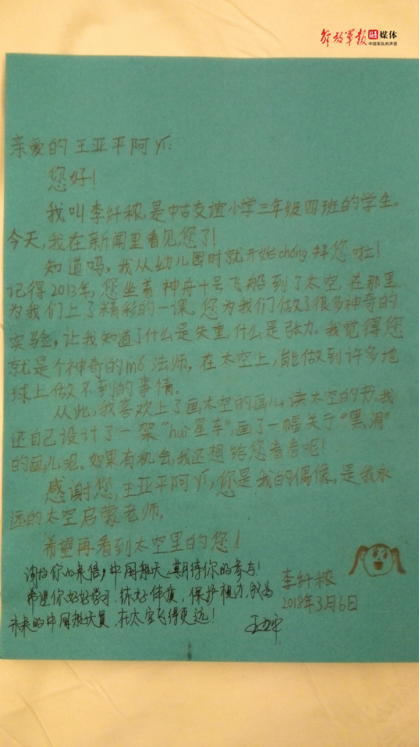 解放军报融媒体
中国军队的声音
亲爱的王亚平阿yí:
您好!
我叫李纤秾,是中古友谊小学三年级四班的学生。
今天,我在新闻里看见您了!
知道吗,我从幼儿园时就开始chóng拜您啦!
记得2013年,您坐着神舟十号飞船到了太空,在那里
为我们上了精彩的一课。您为我们做了很多神奇的
实验,让我知道了什么是失重,什么是张力。我觉得您
就是个神奇的mó法师,在太空上,能做到许多地
球上做不到的事情。
从此,我喜欢上了画太空的画儿,读太空的书。我
还自己设计了一架"huī星车",画了一幅关于"黑洞"
的画儿呢。如果有机会,我还想给您看看呢!
感谢您,王亚平阿yí,您是我的偶像,是我永
远的太空启蒙老师。
希望再看到太空里的您!
李纤秾
2018年3月6日
谢谢你的来信,中国航天期待你的参与!
希望你好好学习,练好体魄,保护视力,成为
未来的中国航天员,在太空飞得更远!
王亚平